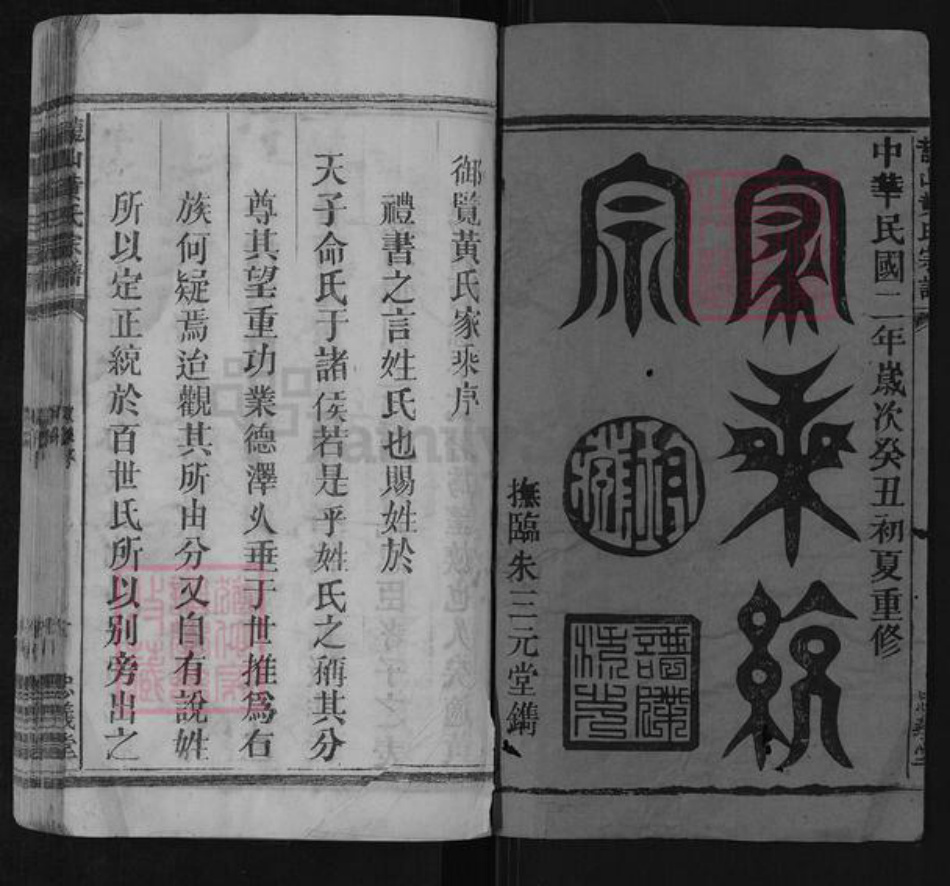 中華民國二年歲次癸丑初夏重修
家乘統
宗
撫臨朱三元堂鐫
御覽黃氏家乘序
禮書之言姓氏也賜姓於
天子命氏于諸侯若是乎姓氏之稱其分
尊其望重功業德澤乆垂于世推為右
族何疑焉迨觀其所由分又自有說姓
所以定正統於百世氏所以别旁出之
山黃氏宗譜